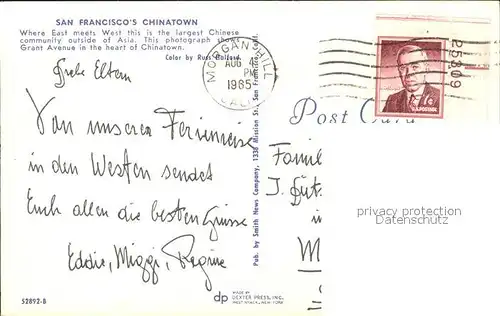 SAN FRANCISCO'S CHINATOWN
Where East meets West this is the largest Chinese
community outside of Asia. This photograph shows
Grant Avenue in the heart of Chinatown.
Color by Russ Halford
MORGAN HILL
AUG 4
PM
1965
CALIF.
25309
Liebe Eltern
Von unserer Ferienreise
in den Westen sendet
Euch allen die besten Grüsse
Eddie, Miggi, Regine
Pub. by Smith News Company, 1330 Mission St., San Francisco, Calif.
Post Card
Famil
J. Gut
in
M
privacy protection
www.ansichtskarten-center.de
52892-B
dp
MADE BY
DEXTER PRESS, INC.
WEST NYACK, NEW YORK